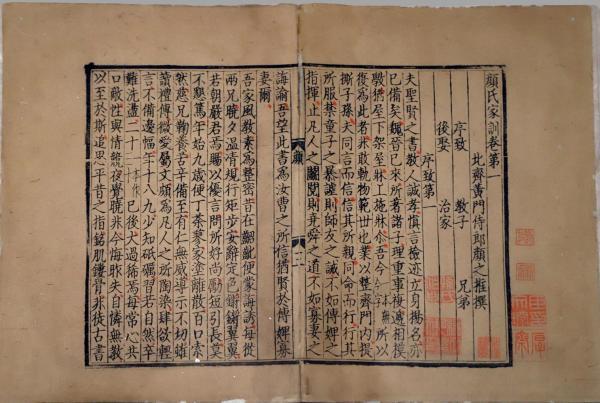 顔氏家訓卷第一
北齊黃門侍郎顔之推撰
序致 教子 兄弟
後娶 治家
序致第一
夫聖賢之書教人誠孝慎言檢迹立身揚名亦
已備矣魏晉已來所著諸子理重事複遞相摸
斆猶屋下架屋牀上施牀尒吾今 所以
復爲此者非敢軌物範世也業以整齊門內提
撕子孫夫同言而信信其所親同命而行行其
所服禁童子之暴謔則師友之誡不如傅婢之
指揮止凡人之鬭鬩則堯舜之道不如寡妻之
顔
誨諭吾望此書爲汝曹之所信猶賢於傅婢寡
妻爾
吾家風教素爲整密昔在齠齔便蒙誨誘每從
兩兄曉夕溫凊規行矩步安辭定色鏘鏘翼翼
若朝嚴君焉賜以優言問所好尚勵短引長莫
不懇篤年始九歲便丁荼蓼家塗離散百口索
然慈兄鞠養苦辛備至有仁無威導示不切雖
讀禮傳微愛屬文頗爲凡人之所陶染肆欲輕
言不備邊幅年十八九少知砥礪習若自然卒
難洗盪二十 已後大過稀焉每常心共
口敵性與情競夜覺曉非今悔昨失自憐無教
以至於斯追思平昔之指銘肌鏤骨非徒古書